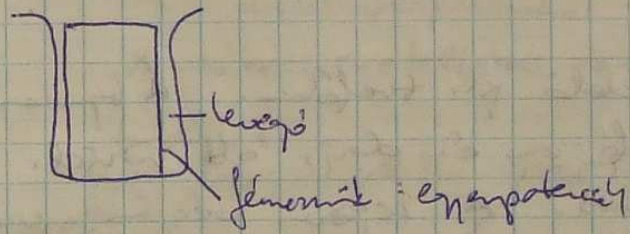 levegő
fémernyők : egyenpotenciál